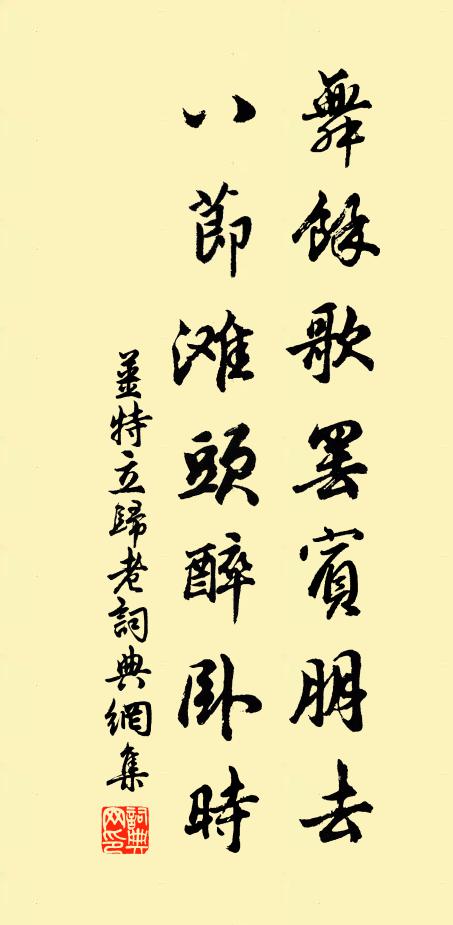 舞餘歌罷賓朋去
八節灘頭醉卧時
姜特立歸老詞典網集
詞典網印